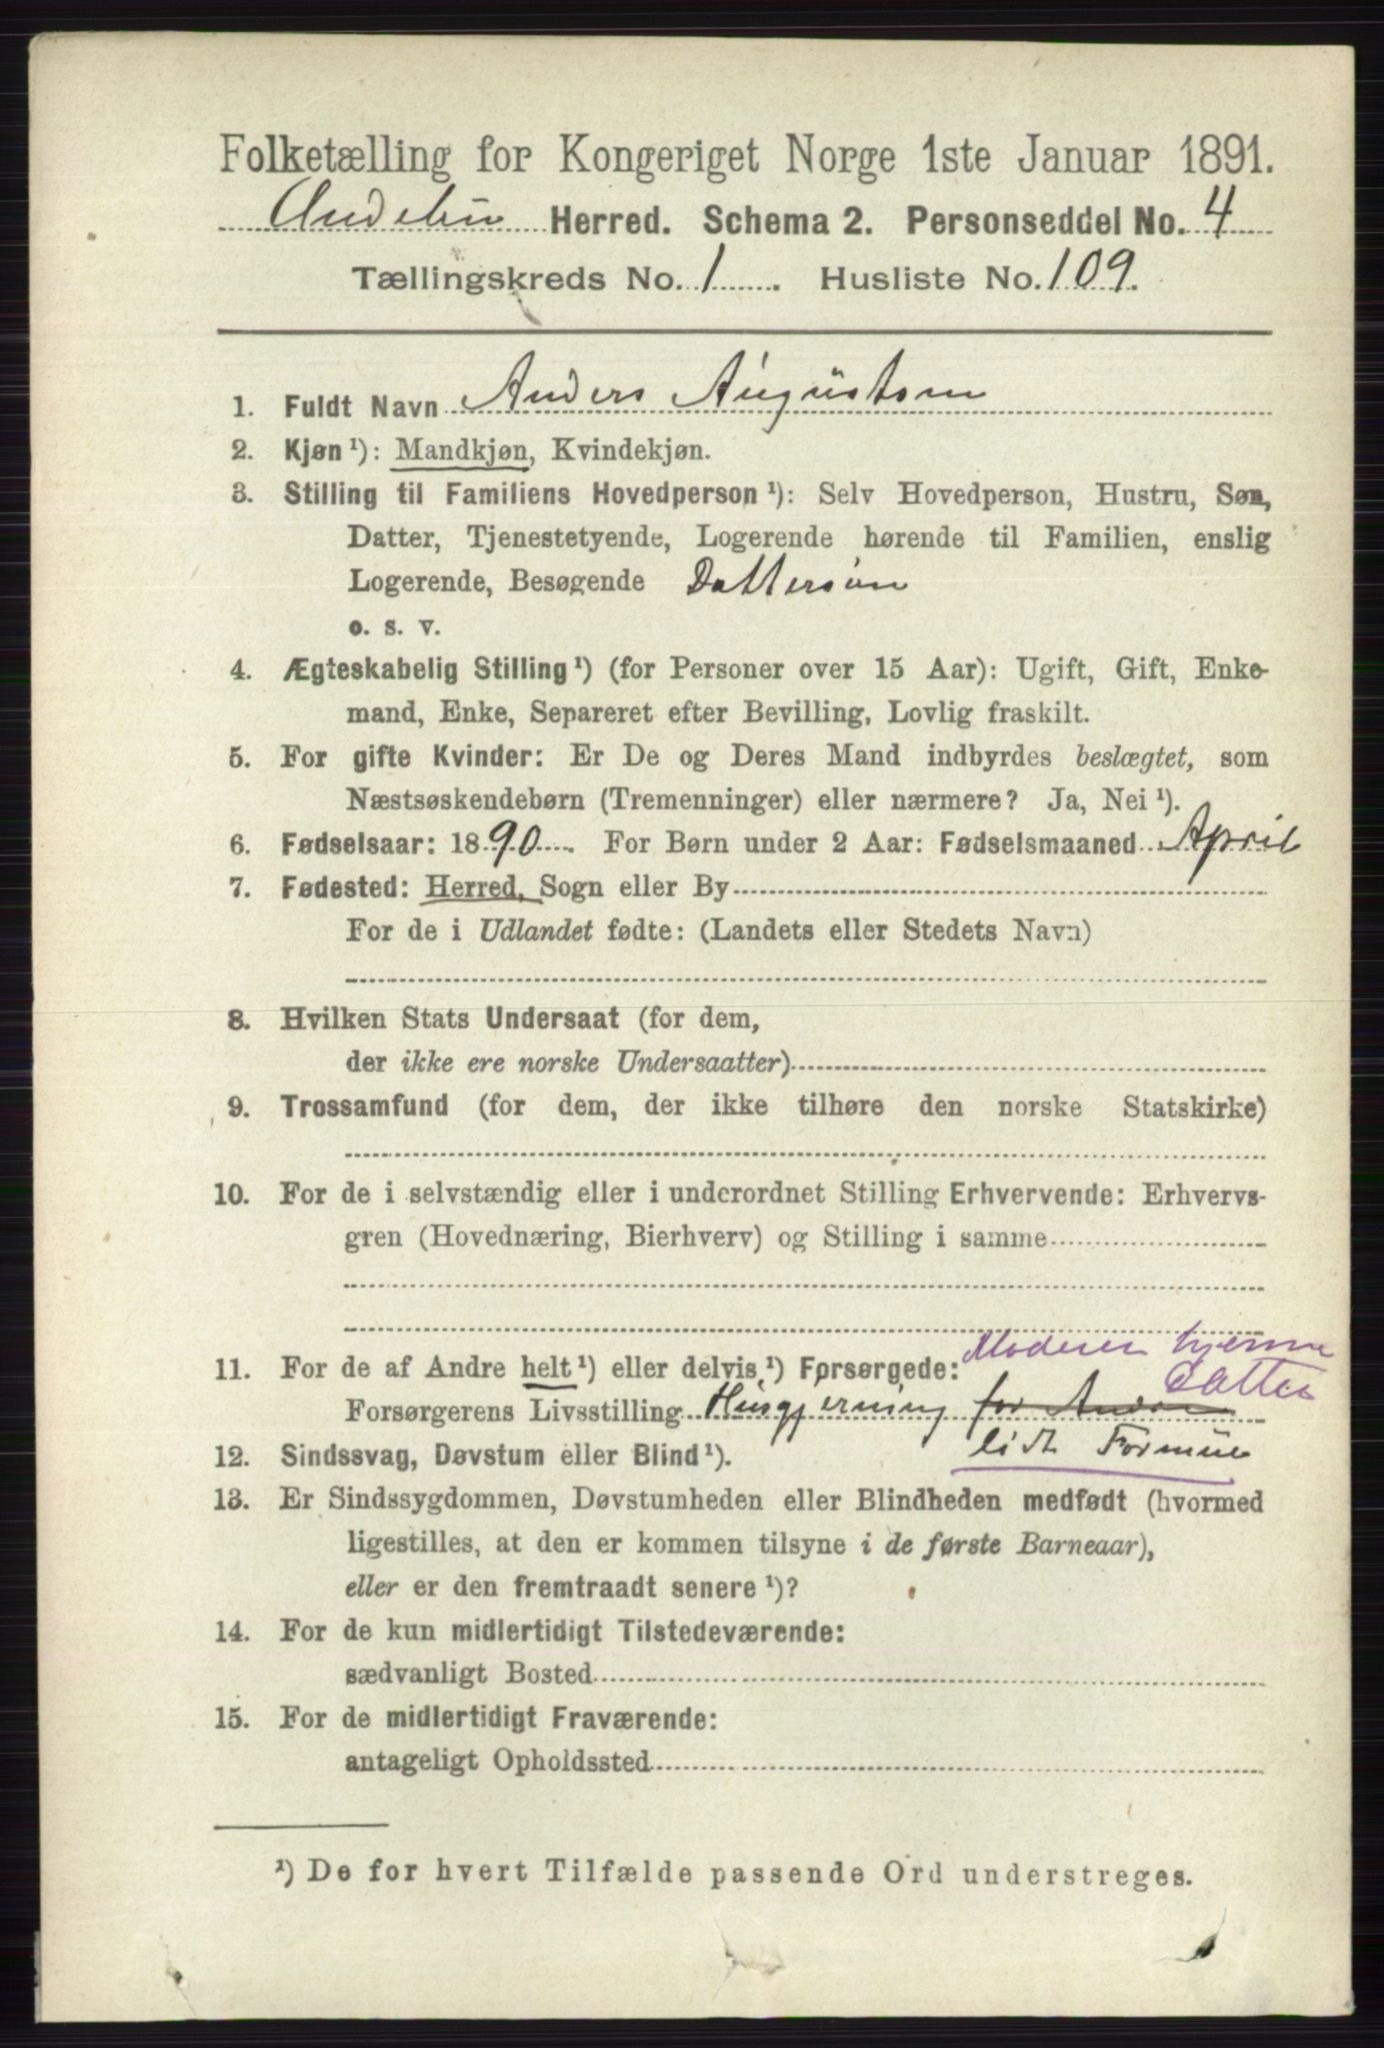 Folketælling for Kongeriget Norge 1ste Januar 1891.
Andebu Herred. Schema 2. Personseddel No. 4
Tællingskreds No. 1. Husliste No. 109.
1. Fuldt Navn Anders Augustsen
2. Kjøn ¹): Mandkjøn, Kvindekjøn.
3. Stilling til Familiens Hovedperson ¹): Selv Hovedperson, Hustru, Søn,
Datter, Tjenestetyende, Logerende hørende til Familien, enslig
Logerende, Besøgende Dattersøn
o. s. v.
4. Ægteskabelig Stilling ¹) (for Personer over 15 Aar): Ugift, Gift, Enke-
mand, Enke, Separeret efter Bevilling, Lovlig fraskilt.
5. For gifte Kvinder: Er De og Deres Mand indbyrdes beslægtet, som
Næstsøskendebørn (Tremenninger) eller nærmere? Ja, Nei ¹).
6. Fødselsaar: 1890. For Børn under 2 Aar: Fødselsmaaned April
7. Fødested: Herred, Sogn eller By
For de i Udlandet fødte: (Landets eller Stedets Navn)
8. Hvilken Stats Undersaat (for dem,
der ikke ere norske Undersaatter)
9. Trossamfund (for dem, der ikke tilhøre den norske Statskirke)
10. For de i selvstændig eller i underordnet Stilling Erhvervende: Erhvervs-
gren (Hovednæring, Bierhverv) og Stilling i samme
Moderen hjemme
11. For de af Andre helt ¹) eller delvis ¹) Forsørgede: Datter
Forsørgerens Livsstilling Husgjerning for Andre
12. Sindssvag, Døvstum eller Blind ¹). lidt Formue
13. Er Sindssygdommen, Døvstumheden eller Blindheden medfødt (hvormed
ligestilles, at den er kommen tilsyne i de første Barneaar),
eller er den fremtraadt senere ¹)?
14. For de kun midlertidigt Tilstedeværende:
sædvanligt Bosted
15. For de midlertidigt Fraværende:
antageligt Opholdssted
¹) De for hvert Tilfælde passende Ord understreges.